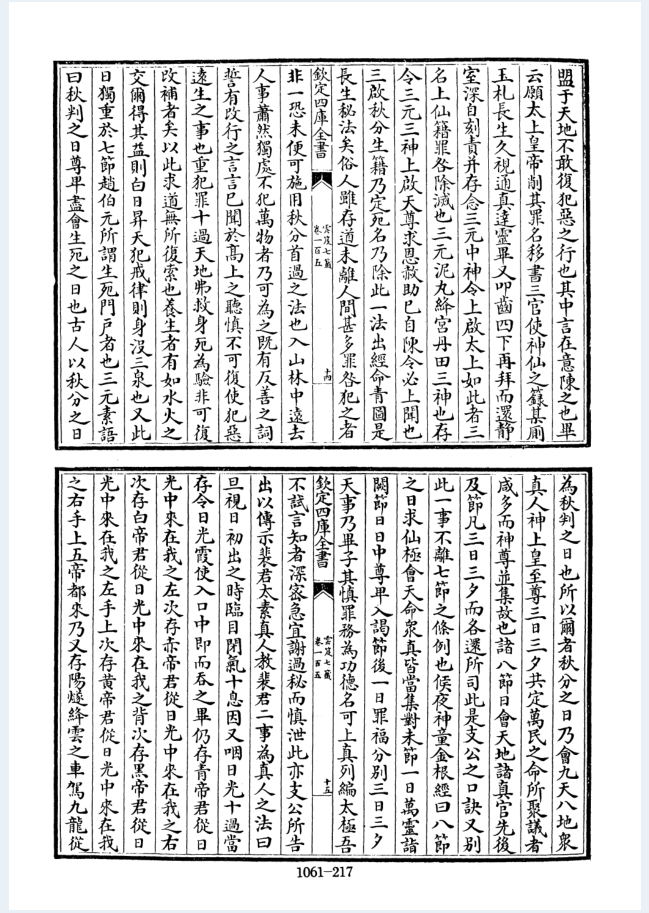 盟于天地不敢復犯惡之行也其中言在意陳之也畢
云願太上皇帝削其罪名移書三官使神仙之籙某廁
玉札長生久視通真達靈畢又叩齒四下再拜而還静
室深自刻責并存念三元中神令上啟太上如此者三
名上仙籍罪咎除滅也三元泥丸絳宮丹田三神也存
令三元三神上啟天尊求恩赦助已自陳令必上聞也
三啟秋分生籍乃定死名乃除此一法出經命青圖是
長生秘法矣俗人雖存道未離人間甚多罪咎犯之者
欽定四庫全書
雲笈七籤
卷一百五
十四
非一恐未便可施旧秋分首過之法也入山林中遠去
人事蕭然獨處不犯萬物者乃可為之既有反善之詞
誓有改行之言言已聞於髙上之聽慎不可復使犯惡
逺生之事也重犯罪十過天地弗救身死為驗非可復
改補者矣以此求道無所復索也養生者有如水火之
交爾得其益則白日昇天犯戒律則身沒三泉也又此
日獨重於七節趙伯元所謂生死門戸者也三元素語
曰秋判之日尊畢盡會生死之日也古人以秋分之日
為秋判之日也所以爾者秋分之日乃會九天八地衆
真人神上皇至尊三日三夕共定萬民之命所聚議者
咸多而神尊並集故也諸八節日會天地諸真官先後
及節凡三日三夕而各還所司此是支公之口訣又别
此一事不離七節之條例也候夜神童金根經曰八節
之日求仙極會天命衆真皆當集對未節一日萬靈詣
闕節日日中尊卑入謁節後一日罪福分别三日三夕
天事乃畢子其慎罪務為功德名可上真列編太極吾
欽定四庫全書
雲笈七籤
卷一百五
十五
不試言知者深密急宜謝過秘而慎泄此亦支公所告
出以傳示裴君太素真人教裴君二事為真人之法曰
旦視日初出之時臨目閉氣十息因又咽日光十過當
存令日光霞使入口中即而吞之畢仍存青帝君從日
光中來在我之左次存赤帝君從日光中來在我之右
次存白帝君從日光中來在我之背次存黑帝君從日
光中來在我之左手上次存黄帝君從日光中來在我
之右手上五帝都來乃又存陽燧絳雲之車駕九龍從
1061-217